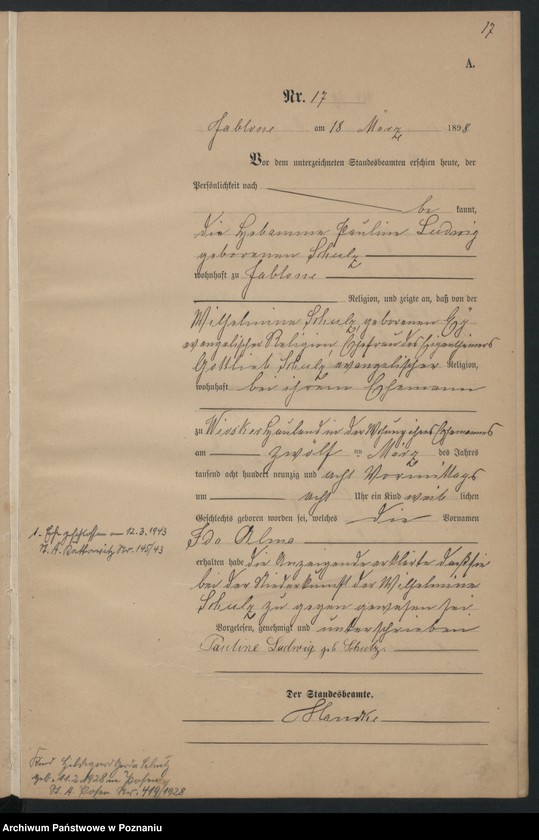 17
A.
Nr. 17
Jablone am 18 März 1898
Vor dem unterzeichneten Standesbeamten erschien heute, der
Persönlichkeit nach
be kannt,
die Hebamme Pauline Ludwig
geborenen Schulz
wohnhaft zu Jablone
Religion, und zeigte an, daß von der
Wilhelmine Schulz, geborenen
evangelischer Religion, Ehefrau des Eigentheimers
Gottlieb Schulz, evangelischer Religion,
wohnhaft bei ihrem Ehemann
zu Hauland in der Wohnung ihres Ehemannes
am zwölf ten März des Jahres
tausend acht hundert neunzig und acht Vormittags
um acht Uhr ein Kind weib lichen
Geschlechts geboren worden sei, welches die Vornamen
Ida Alma
erhalten habe die Anzeigende erklärte daß sie
bei der Niederkunft der Wilhelmine
Schulz zu gegen gewesen sei.
Vorgelesen, genehmigt und unterschrieben
Pauline Ludwig geb Schulz.
Der Standesbeamte.
1. Ehe geschlossen am 12.3.1943
St. A. Kattowitz Nr. 145/43
Kind Hildegard Gerda Schulz
geb. 11.2.1928 in Posen
St. A. Posen Nr. 419/1928
Archiwum Państwowe w Poznaniu